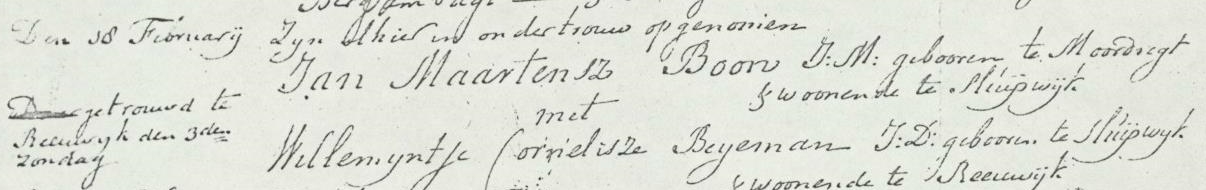 Den 18 Februarij Zyn alhier in ondertrouw opgenomen
Jan Maartensz Boon J: M: gebooren te Moordregt
& woonende te Sluipwijk
met
Willemyntje Cornelisze Beyeman J: D: gebooren te Sluipwyk
& woonende te Reeuwijk
getrouwd te
Reeuwyk den 3den
Zondag